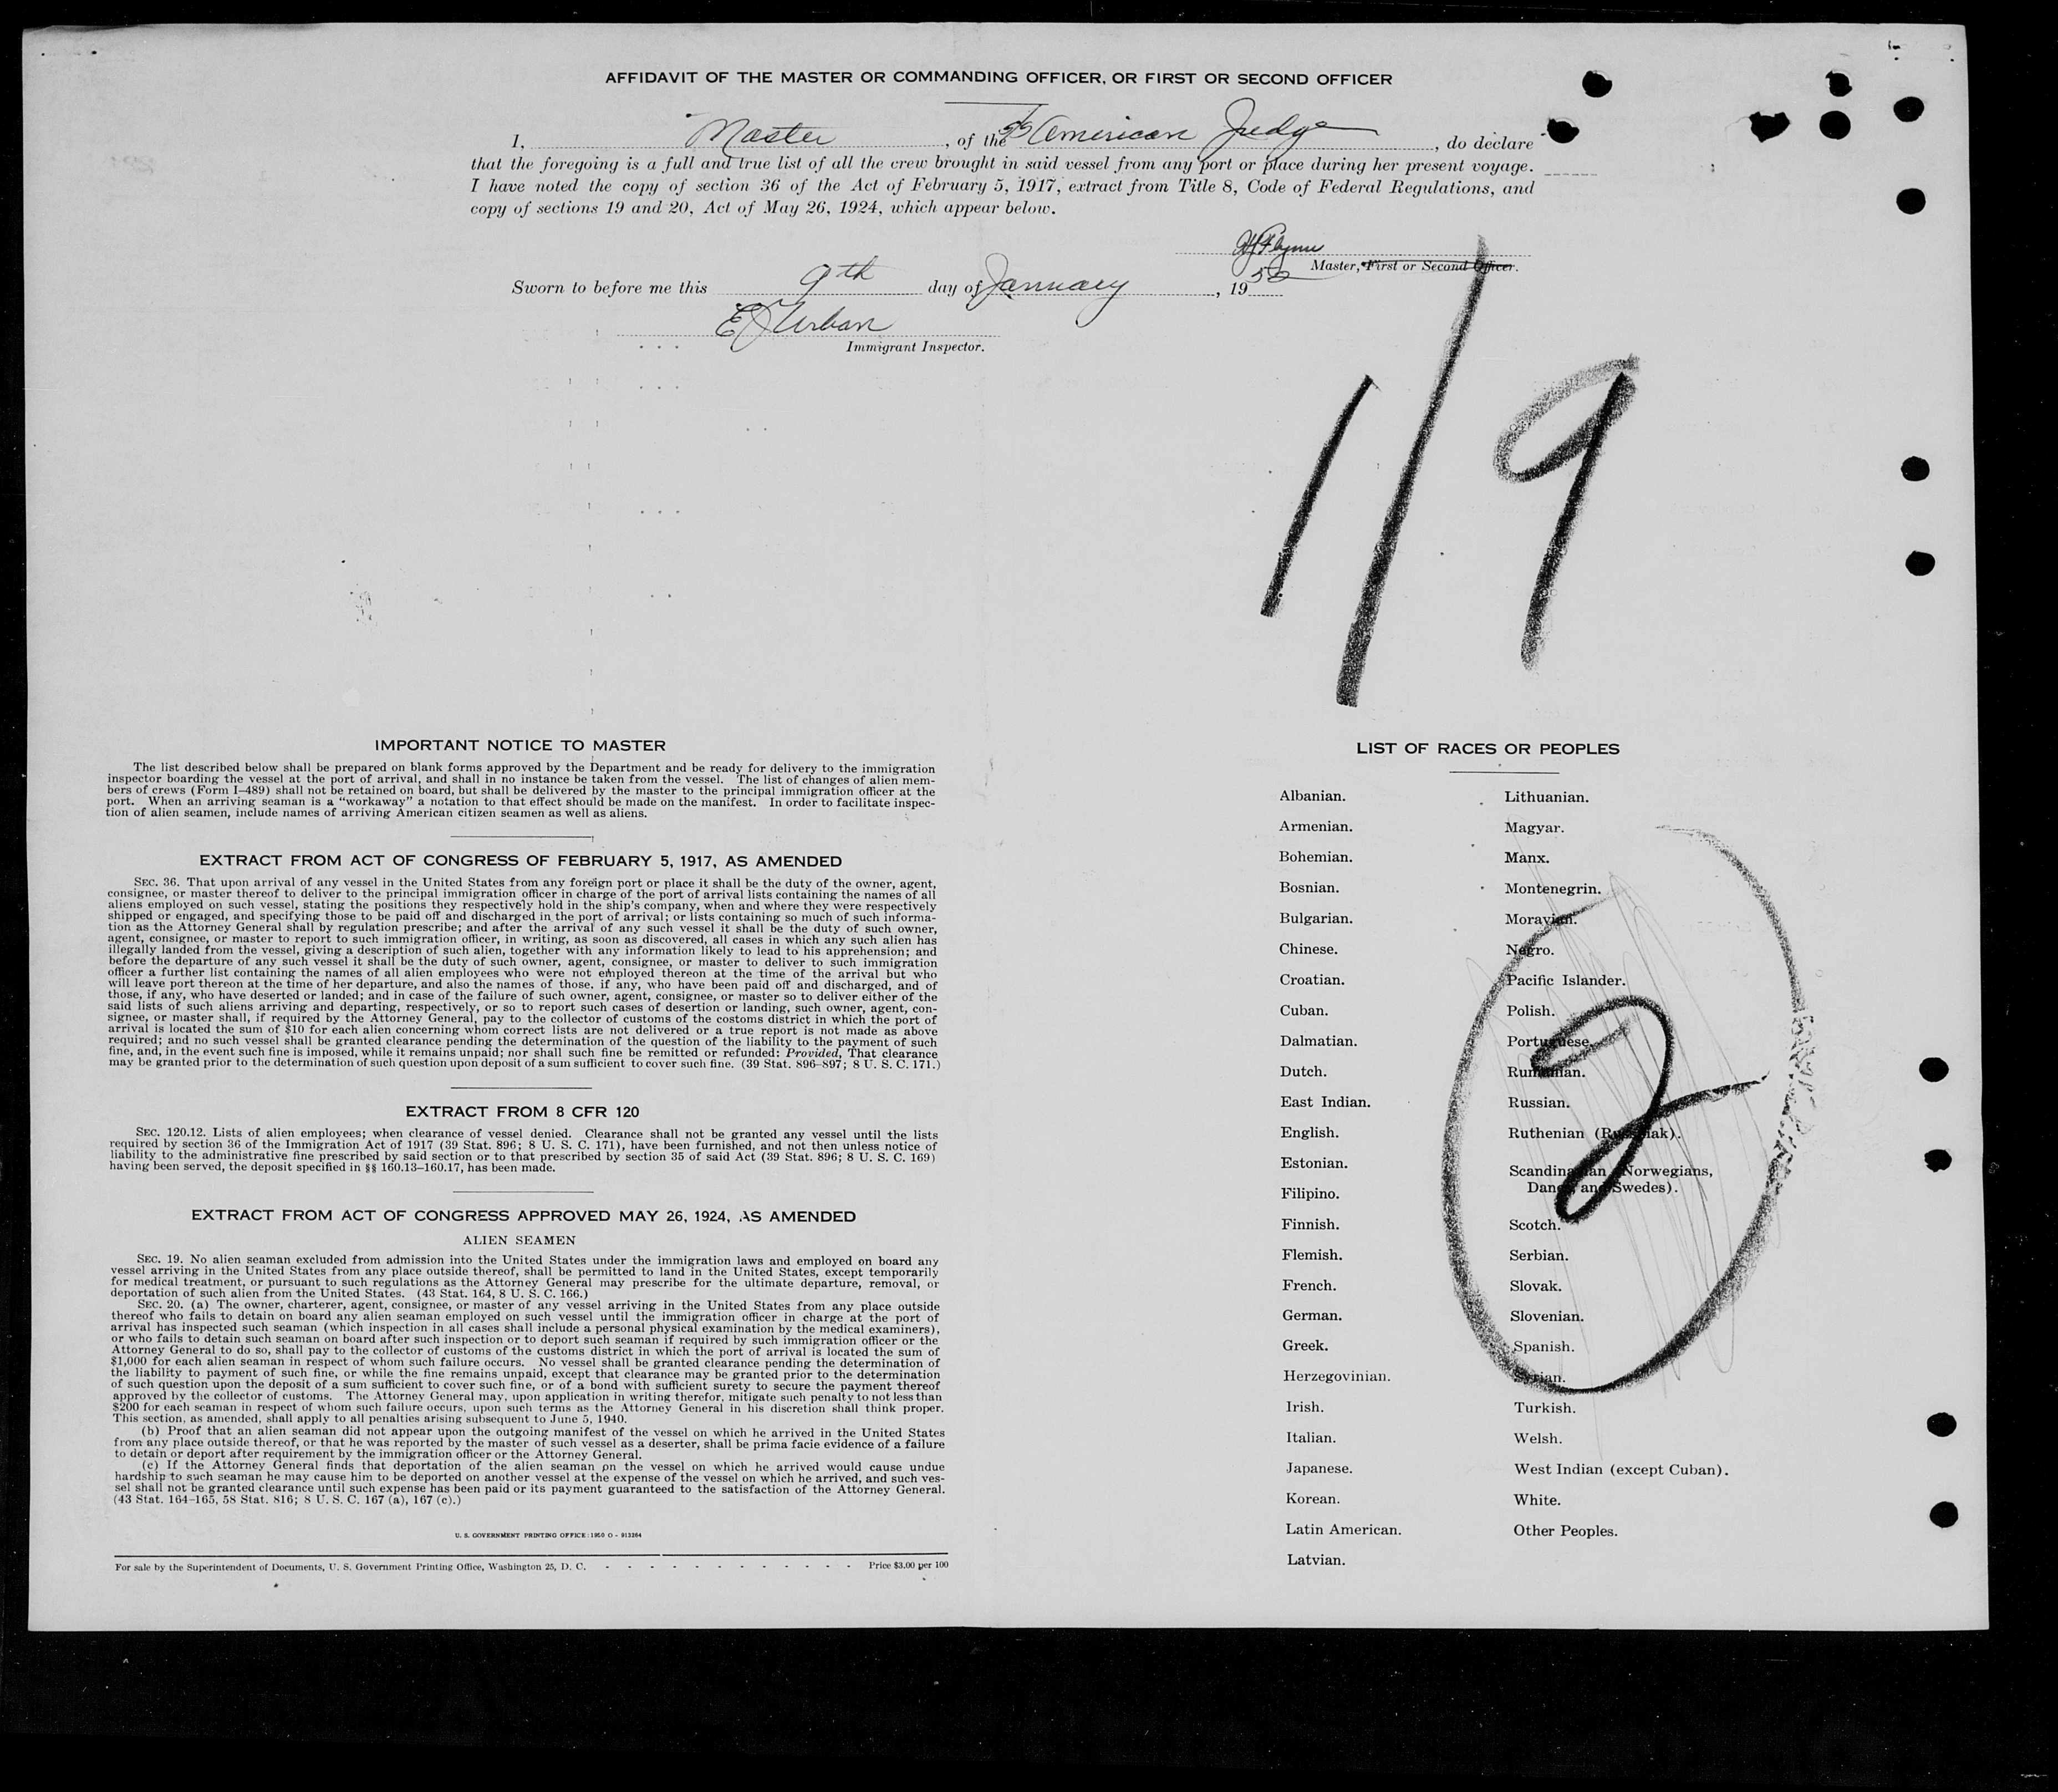 AFFIDAVIT OF THE MASTER OR COMMANDING OFFICER, OR FIRST OR SECOND OFFICER
I, Master, of the SS American Judge, do declare
that the foregoing is a full and true list of all the crew brought in said vessel from any port or place during her present voyage.
I have noted the copy of section 36 of the Act of February 5, 1917, extract from Title 8, Code of Federal Regulations, and
copy of sections 19 and 20, Act of May 26, 1924, which appear below.
Flynn
Master, First or Second Officer.
Sworn to before me this 9th day of January, 19
E J Urban
Immigrant Inspector.
1/9
IMPORTANT NOTICE TO MASTER
The list described below shall be prepared on blank forms approved by the Department and be ready for delivery to the immigration
inspector boarding the vessel at the port of arrival, and shall in no instance be taken from the vessel. The list of changes of alien mem-
bers of crews (Form I–489) shall not be retained on board, but shall be delivered by the master to the principal immigration officer at the
port. When an arriving seaman is a “workaway” a notation to that effect should be made on the manifest. In order to facilitate inspec-
tion of alien seamen, include names of arriving American citizen seamen as well as aliens.
EXTRACT FROM ACT OF CONGRESS OF FEBRUARY 5, 1917, AS AMENDED
SEC. 36. That upon arrival of any vessel in the United States from any foreign port or place it shall be the duty of the owner, agent,
consignee, or master thereof to deliver to the principal immigration officer in charge of the port of arrival lists containing the names of all
aliens employed on such vessel, stating the positions they respectively hold in the ship's company, when and where they were respectively
shipped or engaged, and specifying those to be paid off and discharged in the port of arrival; or lists containing so much of such informa-
tion as the Attorney General shall by regulation prescribe; and after the arrival of any such vessel it shall be the duty of such owner,
agent, consignee, or master to report to such immigration officer, in writing, as soon as discovered, all cases in which any such alien has
illegally landed from the vessel, giving a description of such alien, together with any information likely to lead to his apprehension; and
before the departure of any such vessel it shall be the duty of such owner, agent, consignee, or master to deliver to such immigration
officer a further list containing the names of all alien employees who were not employed thereon at the time of the arrival but who
will leave port thereon at the time of her departure, and also the names of those, if any, who have been paid off and discharged, and of
those, if any, who have deserted or landed; and in case of the failure of such owner, agent, consignee, or master so to deliver either of the
said lists of such aliens arriving and departing, respectively, or so to report such cases of desertion or landing, such owner, agent, con-
signee, or master shall, if required by the Attorney General, pay to the collector of customs of the costoms district in which the port of
arrival is located the sum of $10 for each alien concerning whom correct lists are not delivered or a true report is not made as above
required; and no such vessel shall be granted clearance pending the determination of the question of the liability to the payment of such
fine, and, in the event such fine is imposed, while it remains unpaid; nor shall such fine be remitted or refunded: Provided, That clearance
may be granted prior to the determination of such question upon deposit of a sum sufficient to cover such fine. (39 Stat. 896–897; 8 U. S. C. 171.)
EXTRACT FROM 8 CFR 120
SEC. 120.12. Lists of alien employees; when clearance of vessel denied. Clearance shall not be granted any vessel until the lists
required by section 36 of the Immigration Act of 1917 (39 Stat. 896; 8 U. S. C. 171), have been furnished, and not then unless notice of
liability to the administrative fine prescribed by said section or to that prescribed by section 35 of said Act (39 Stat. 896; 8 U. S. C. 169)
having been served, the deposit specified in §§ 160.13–160.17, has been made.
EXTRACT FROM ACT OF CONGRESS APPROVED MAY 26, 1924, AS AMENDED
ALIEN SEAMEN
SEC. 19. No alien seaman excluded from admission into the United States under the immigration laws and employed on board any
vessel arriving in the United States from any place outside thereof, shall be permitted to land in the United States, except temporarily
for medical treatment, or pursuant to such regulations as the Attorney General may prescribe for the ultimate departure, removal, or
deportation of such alien from the United States. (43 Stat. 164, 8 U. S. C. 166.)
SEC. 20. (a) The owner, charterer, agent, consignee, or master of any vessel arriving in the United States from any place outside
thereof who fails to detain on board any alien seaman employed on such vessel until the immigration officer in charge at the port of
arrival has inspected such seaman (which inspection in all cases shall include a personal physical examination by the medical examiners),
or who fails to detain such seaman on board after such inspection or to deport such seaman if required by such immigration officer or the
Attorney General to do so, shall pay to the collector of customs of the customs district in which the port of arrival is located the sum of
$1,000 for each alien seaman in respect of whom such failure occurs. No vessel shall be granted clearance pending the determination of
the liability to payment of such fine, or while the fine remains unpaid, except that clearance may be granted prior to the determination
of such question upon the deposit of a sum sufficient to cover such fine, or of a bond with sufficient surety to secure the payment thereof
approved by the collector of customs. The Attorney General may, upon application in writing therefor, mitigate such penalty to not less than
$200 for each seaman in respect of whom such failure occurs, upon such terms as the Attorney General in his discretion shall think proper.
This section, as amended, shall apply to all penalties arising subsequent to June 5, 1940.
(b) Proof that an alien seaman did not appear upon the outgoing manifest of the vessel on which he arrived in the United States
from any place outside thereof, or that he was reported by the master of such vessel as a deserter, shall be prima facie evidence of a failure
to detain or deport after requirement by the immigration officer or the Attorney General.
(c) If the Attorney General finds that deportation of the alien seaman on the vessel on which he arrived would cause undue
hardship to such seaman he may cause him to be deported on another vessel at the expense of the vessel on which he arrived, and such ves-
sel shall not be granted clearance until such expense has been paid or its payment guaranteed to the satisfaction of the Attorney General.
(43 Stat. 164–165, 58 Stat. 816; 8 U. S. C. 167 (a), 167 (c).)
U. S. GOVERNMENT PRINTING OFFICE : 1950 O - 913264
For sale by the Superintendent of Documents, U. S. Government Printing Office, Washington 25, D. C. - - - - - - - - - - - - Price $3.00 per 100
LIST OF RACES OR PEOPLES
Albanian.
Armenian.
Bohemian.
Bosnian.
Bulgarian.
Chinese.
Croatian.
Cuban.
Dalmatian.
Dutch.
East Indian.
English.
Estonian.
Filipino.
Finnish.
Flemish.
French.
German.
Greek.
Herzegovinian.
Irish.
Italian.
Japanese.
Korean.
Latin American.
Latvian.
Lithuanian.
Magyar.
Manx.
Montenegrin.
Moravian.
Negro.
Pacific Islander.
Polish.
Portuguese.
Rumanian.
Russian.
Ruthenian (Russniak).
Scandinavian (Norwegians,
Danes, and Swedes).
Scotch.
Serbian.
Slovak.
Slovenian.
Spanish.
Syrian.
Turkish.
Welsh.
West Indian (except Cuban).
White.
Other Peoples.
2